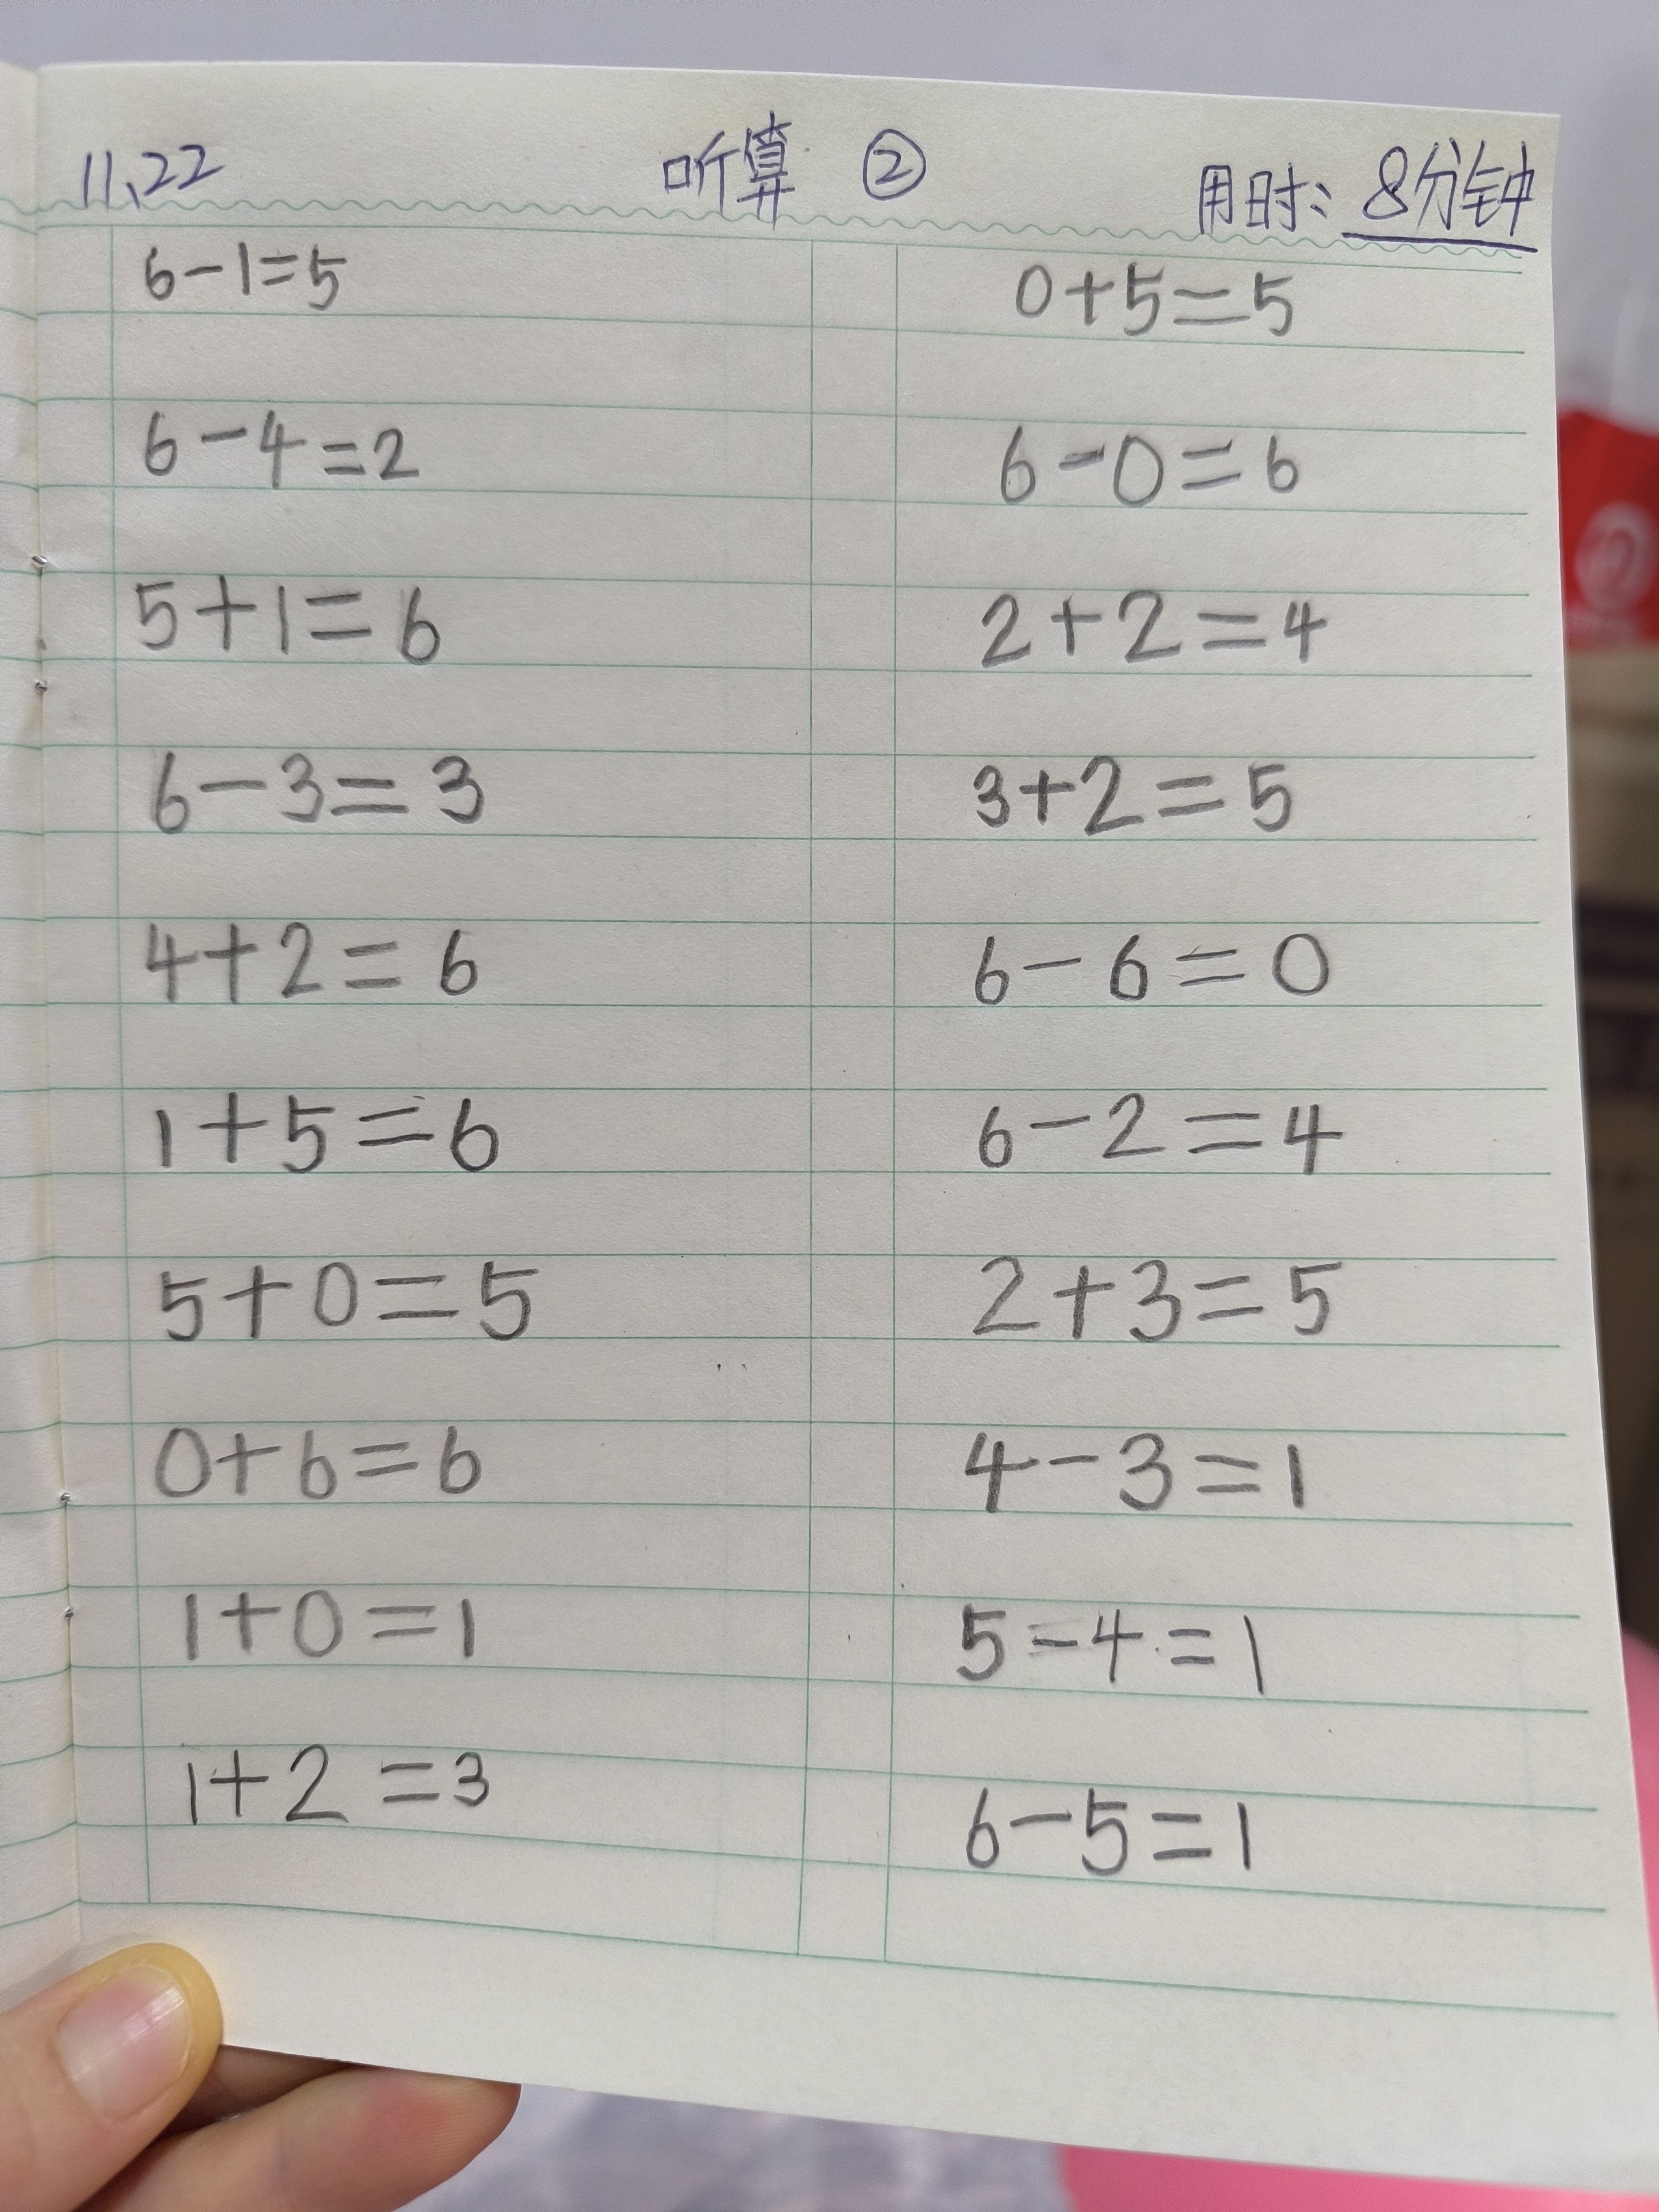 11、22 听算 ② 用时: 8分钟
6-1=5
6-4=2
5+1=6
6-3=3
4+2=6
1+5=6
5+0=5
0+6=6
1+0=1
1+2=3
0+5=5
6-0=6
2+2=4
3+2=5
6-6=0
6-2=4
2+3=5
4-3=1
5-4=1
6-5=1